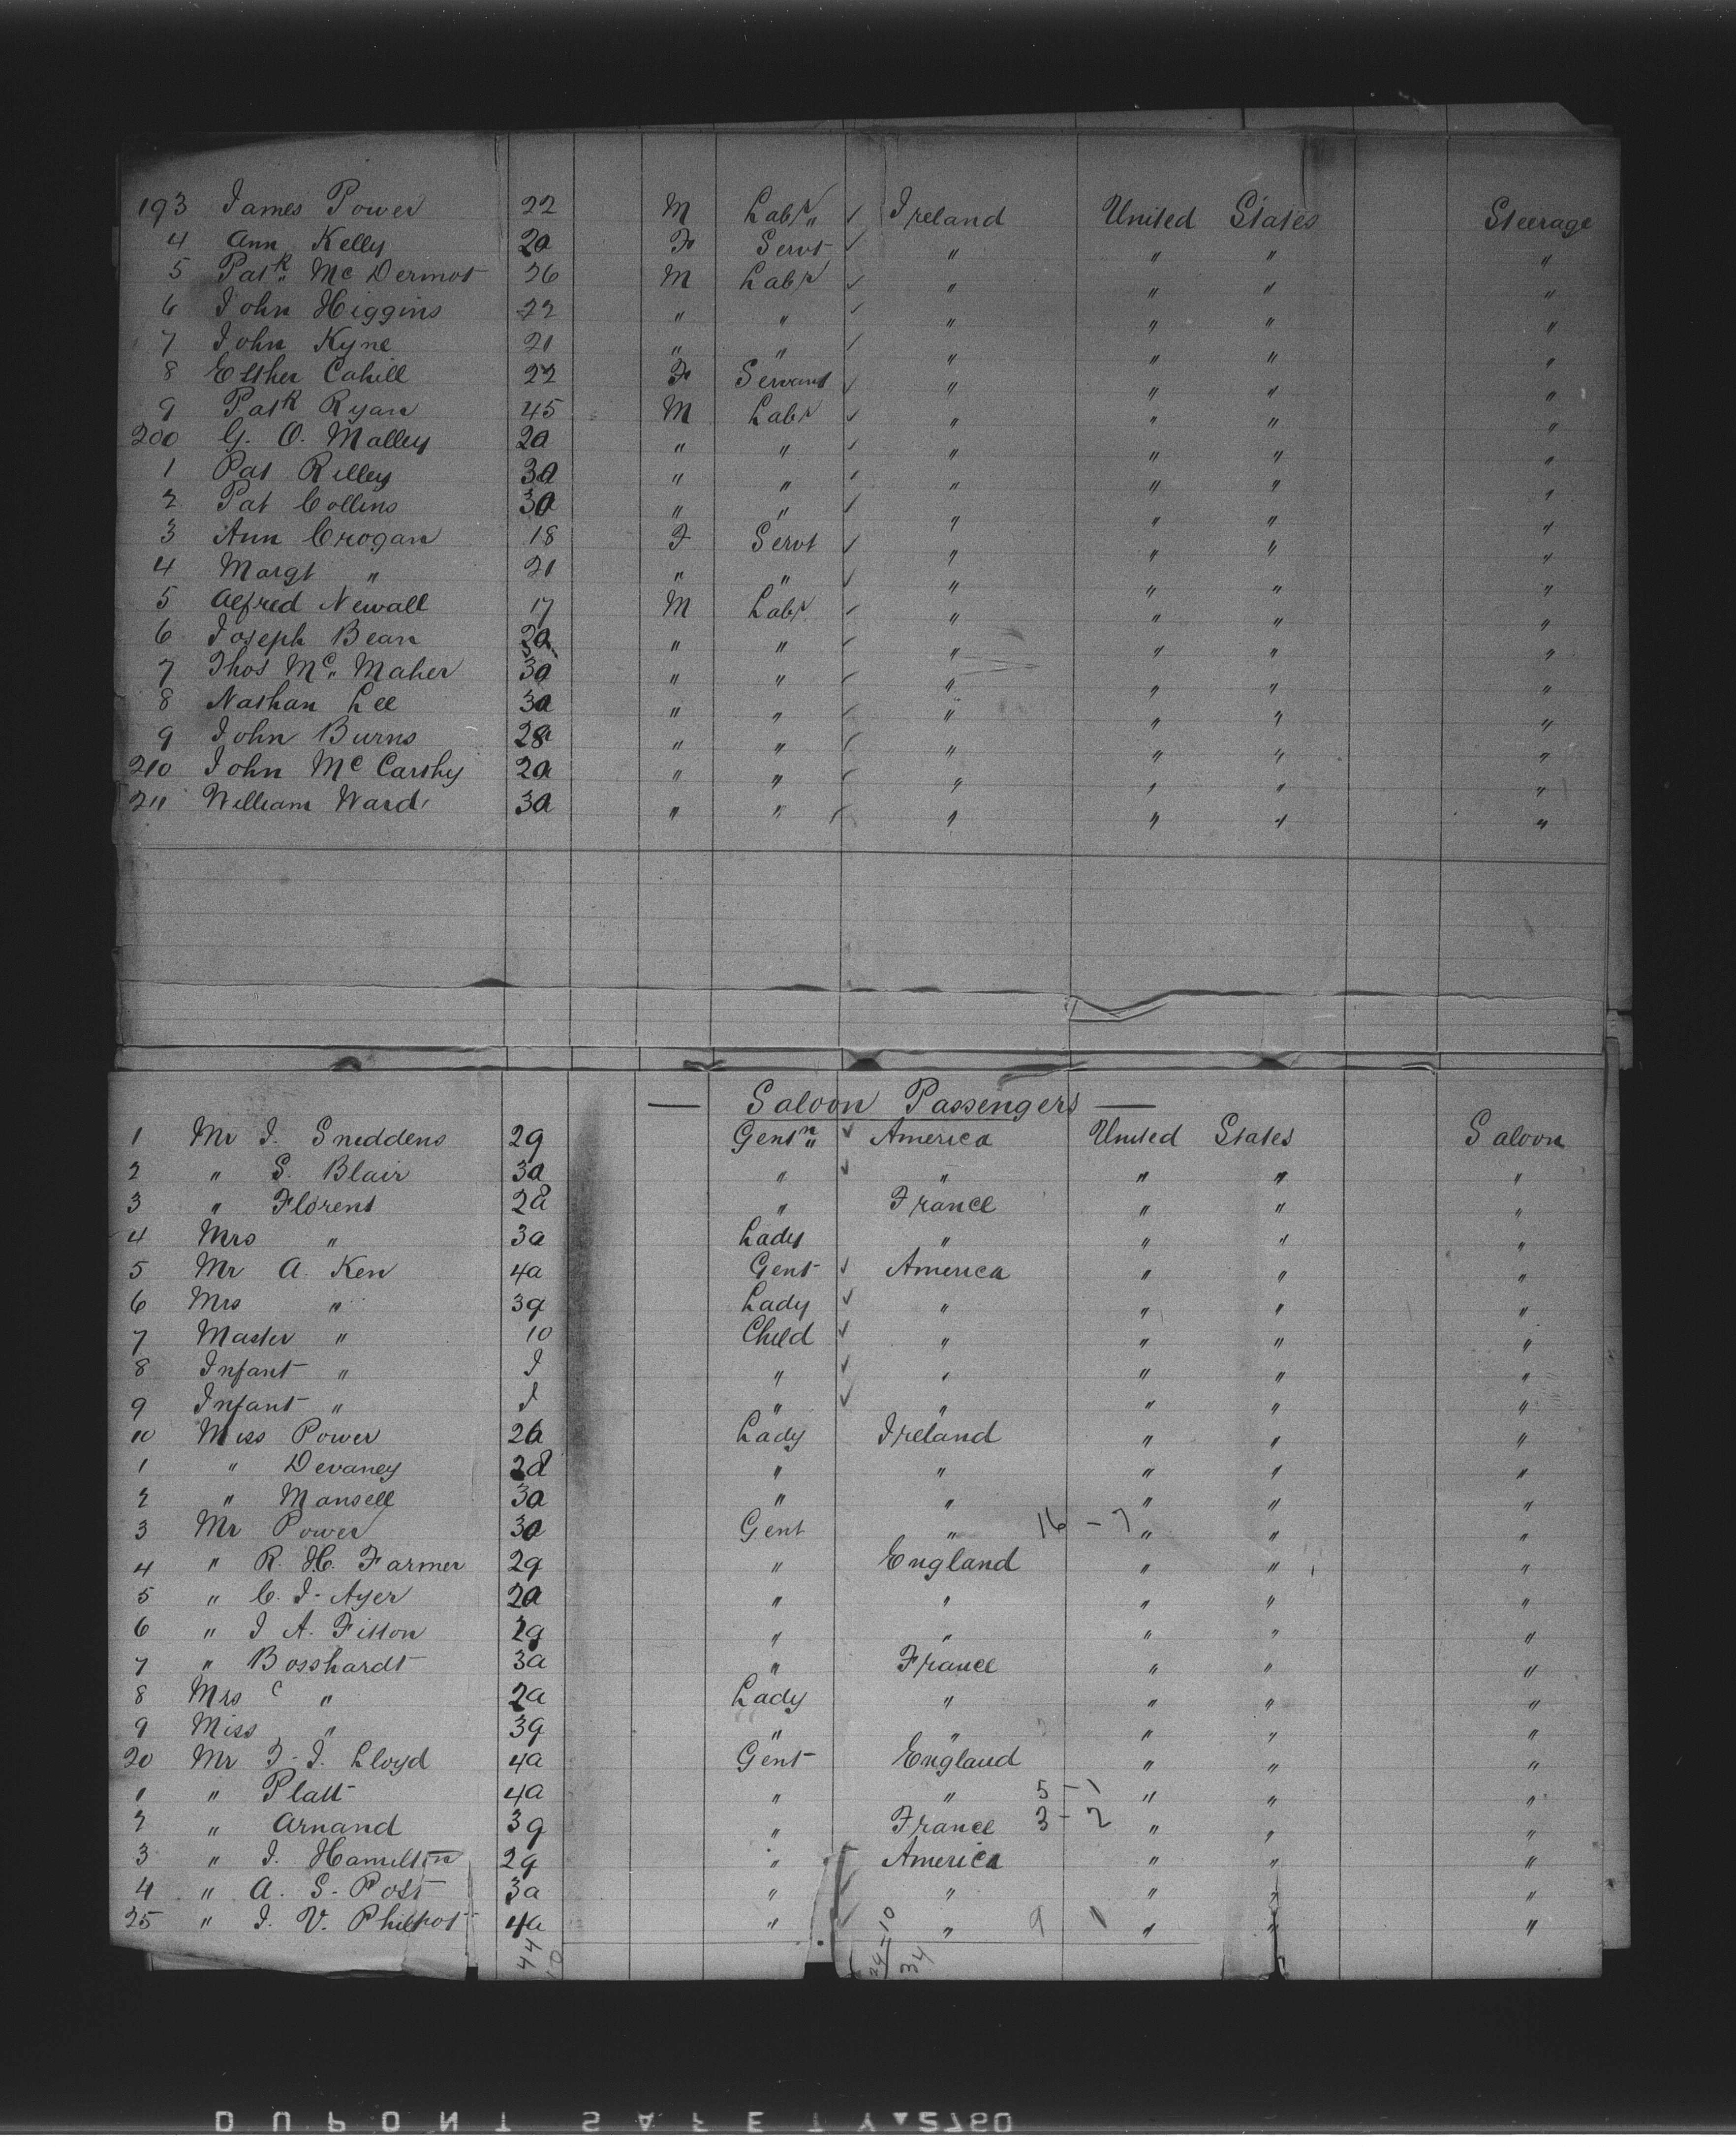 193 James Power 22 M Labr Ireland United States Steerage
4 Ann Kelly 20 F Servt " " " "
5 Patk Mc Dermot 26 M Labr " " " "
6 John Higgins 22 " " " " " "
7 John Kyne 21 " " " " " "
8 Esther Cahill 22 F Servant " " " "
9 Patk Ryan 45 M Labr " " " "
200 G. O. Malley 20 " " " " " "
1 Pat Rilley 30 " " " " " "
2 Pat Collins 30 " " " " " "
3 Ann Crogan 18 F Servt " " " "
4 Margt " 21 " " " " " "
5 Alfred Newall 17 M Labr " " " "
6 Joseph Bean 20 " " " " " "
7 Thos Mc Maher 30 " " " " " "
8 Nathan Lee 30 " " " " " "
9 John Burns 28 " " " " " "
210 John Mc Carthy 20 " " " " " "
211 William Ward 30 " " " " " "
— Saloon Passengers —
1 Mr J. Sneddens 29 Gentn America United States Saloon
2 " S. Blair 30 " " " " "
3 " Florent 28 " France " " "
4 Mrs " 30 Lady " " " "
5 Mr A. Ken 40 Gent America " " "
6 Mrs " 39 Lady " " " "
7 Master " 10 Child " " " "
8 Infant " I " " " " "
9 Infant " I " " " " "
10 Miss Power 26 Lady Ireland " " "
1 " Devaney 28 " " " " "
2 " Mansell 30 " " " " "
3 Mr Power 30 Gent " 16 - 7 " " "
4 " R. H. Farmer 29 " England " " "
5 " C. J. Ayer 20 " " " " "
6 " J A. Fitton 29 " " " " "
7 " Bosshardt 30 " France " " "
8 Mrs " 20 Lady " " " "
9 Miss " 39 " " " " "
20 Mr F. J. Lloyd 40 Gent England " " "
1 " Platt 40 " " 5 - 1 " " "
2 " Arnand 39 " France 3 - 2 " " "
3 " J. Hamilton 29 " America " " "
4 " A. S. Post 30 " " " " "
25 " J. V. Philpot 40 " " 9 1 " " "
44 10 24-10 34
DUPONT SAFETY 2760